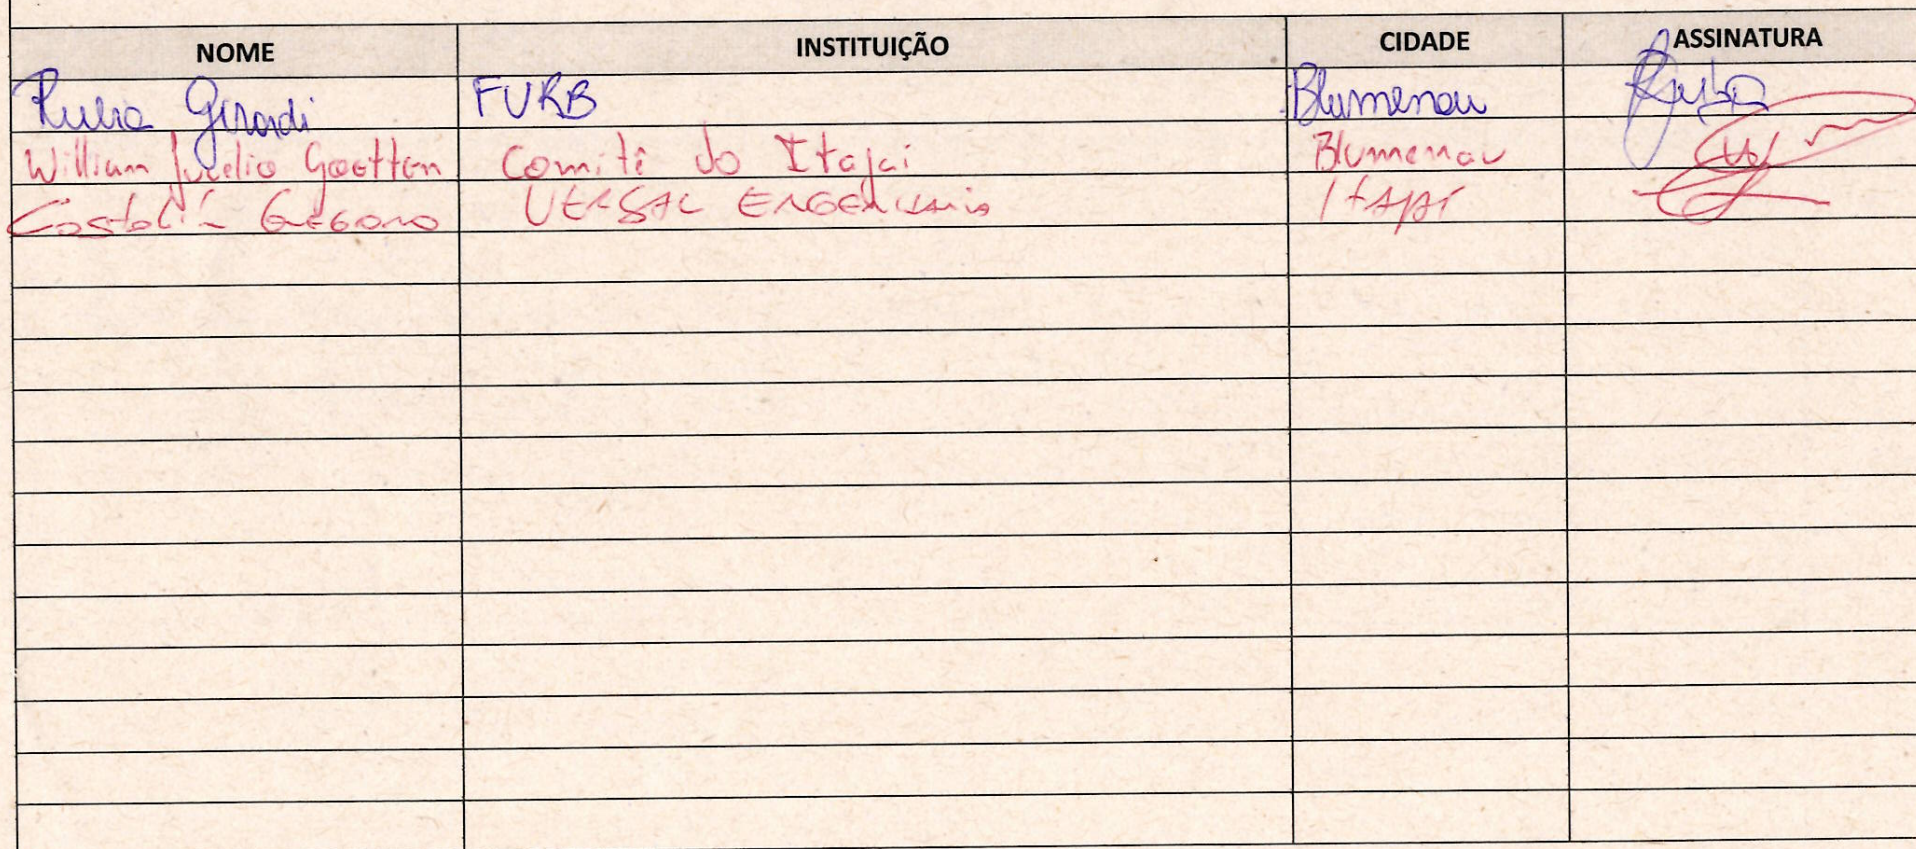 NOME INSTITUIÇÃO CIDADE ASSINATURA
Rubia Girardi FURB Blumenau
William Jucelio Goetten Comitê do Itajaí Blumenau
Gregorio VERSAL ENGENHARIA ITAJAÍ